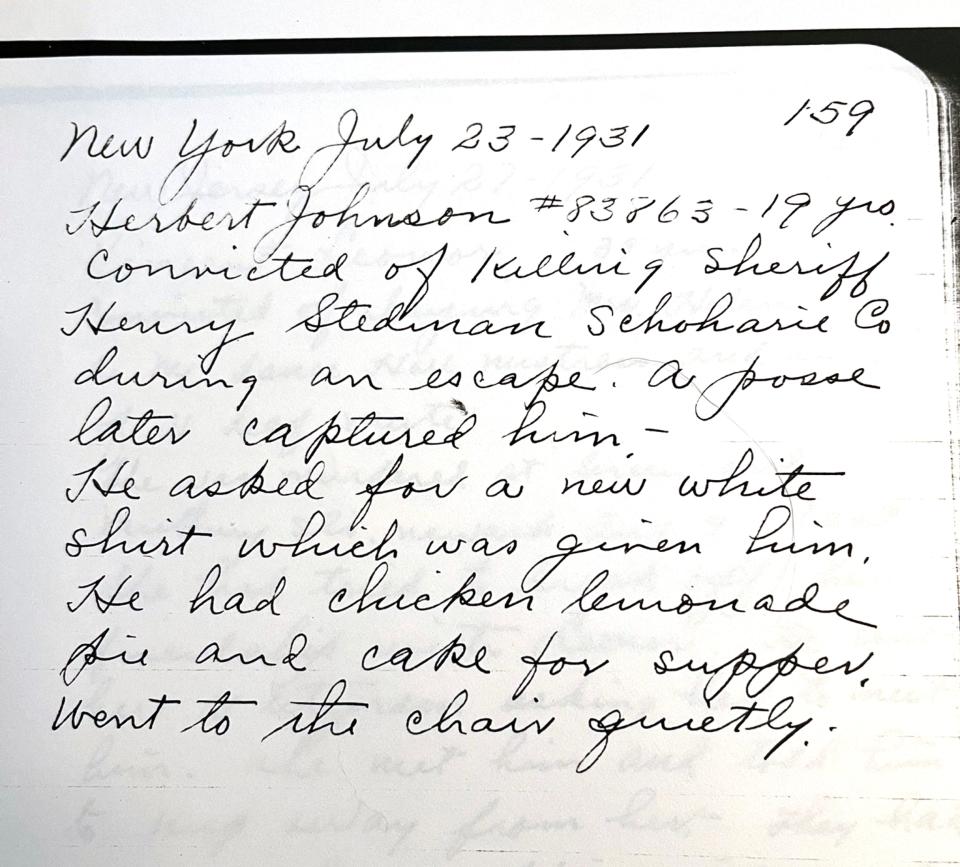 159
New York July 23-1931
Herbert Johnson #83863-19 yrs.
Convicted of Killing Sheriff
Henry Stedman Schoharie Co
during an escape. A posse
later captured him-
He asked for a new white
shirt which was given him.
He had chicken lemonade
pie and cake for supper.
Went to the chair quietly.